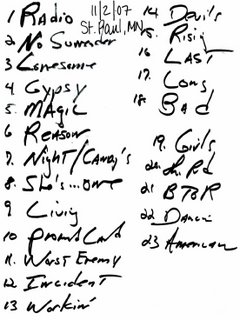 11/2/07
St. Paul, MN
1 Radio
2 No Surrender
3 Lonesome
4 Gypsy
5. Magic
6 Reason
7. Night/Candy's
8. She's...one
9 Living
10 Promised Land
11. Worst Enemy
12 Incident
13 Workin'
14. Devil's
15. Rising
16 Last
17. Long
18. Bad
19. Girls
20. Th. Rd
21 BTOR
22 Dancin
23 American